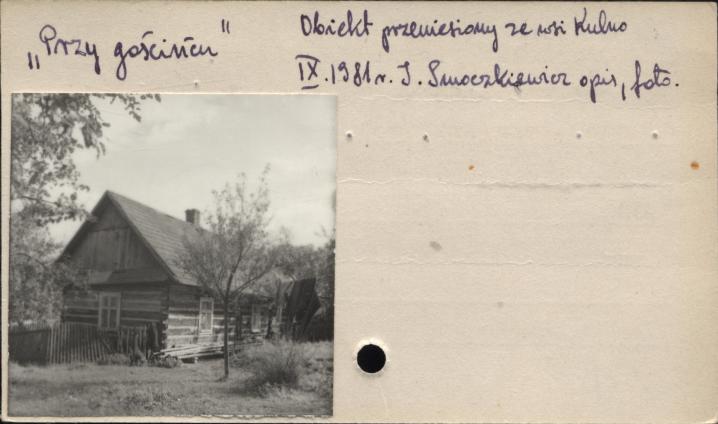 „Przy gościńcu”
Obiekt przeniesiony ze wsi Kulno
IX.1981 r. J. Smoczkiewicz opis, foto.